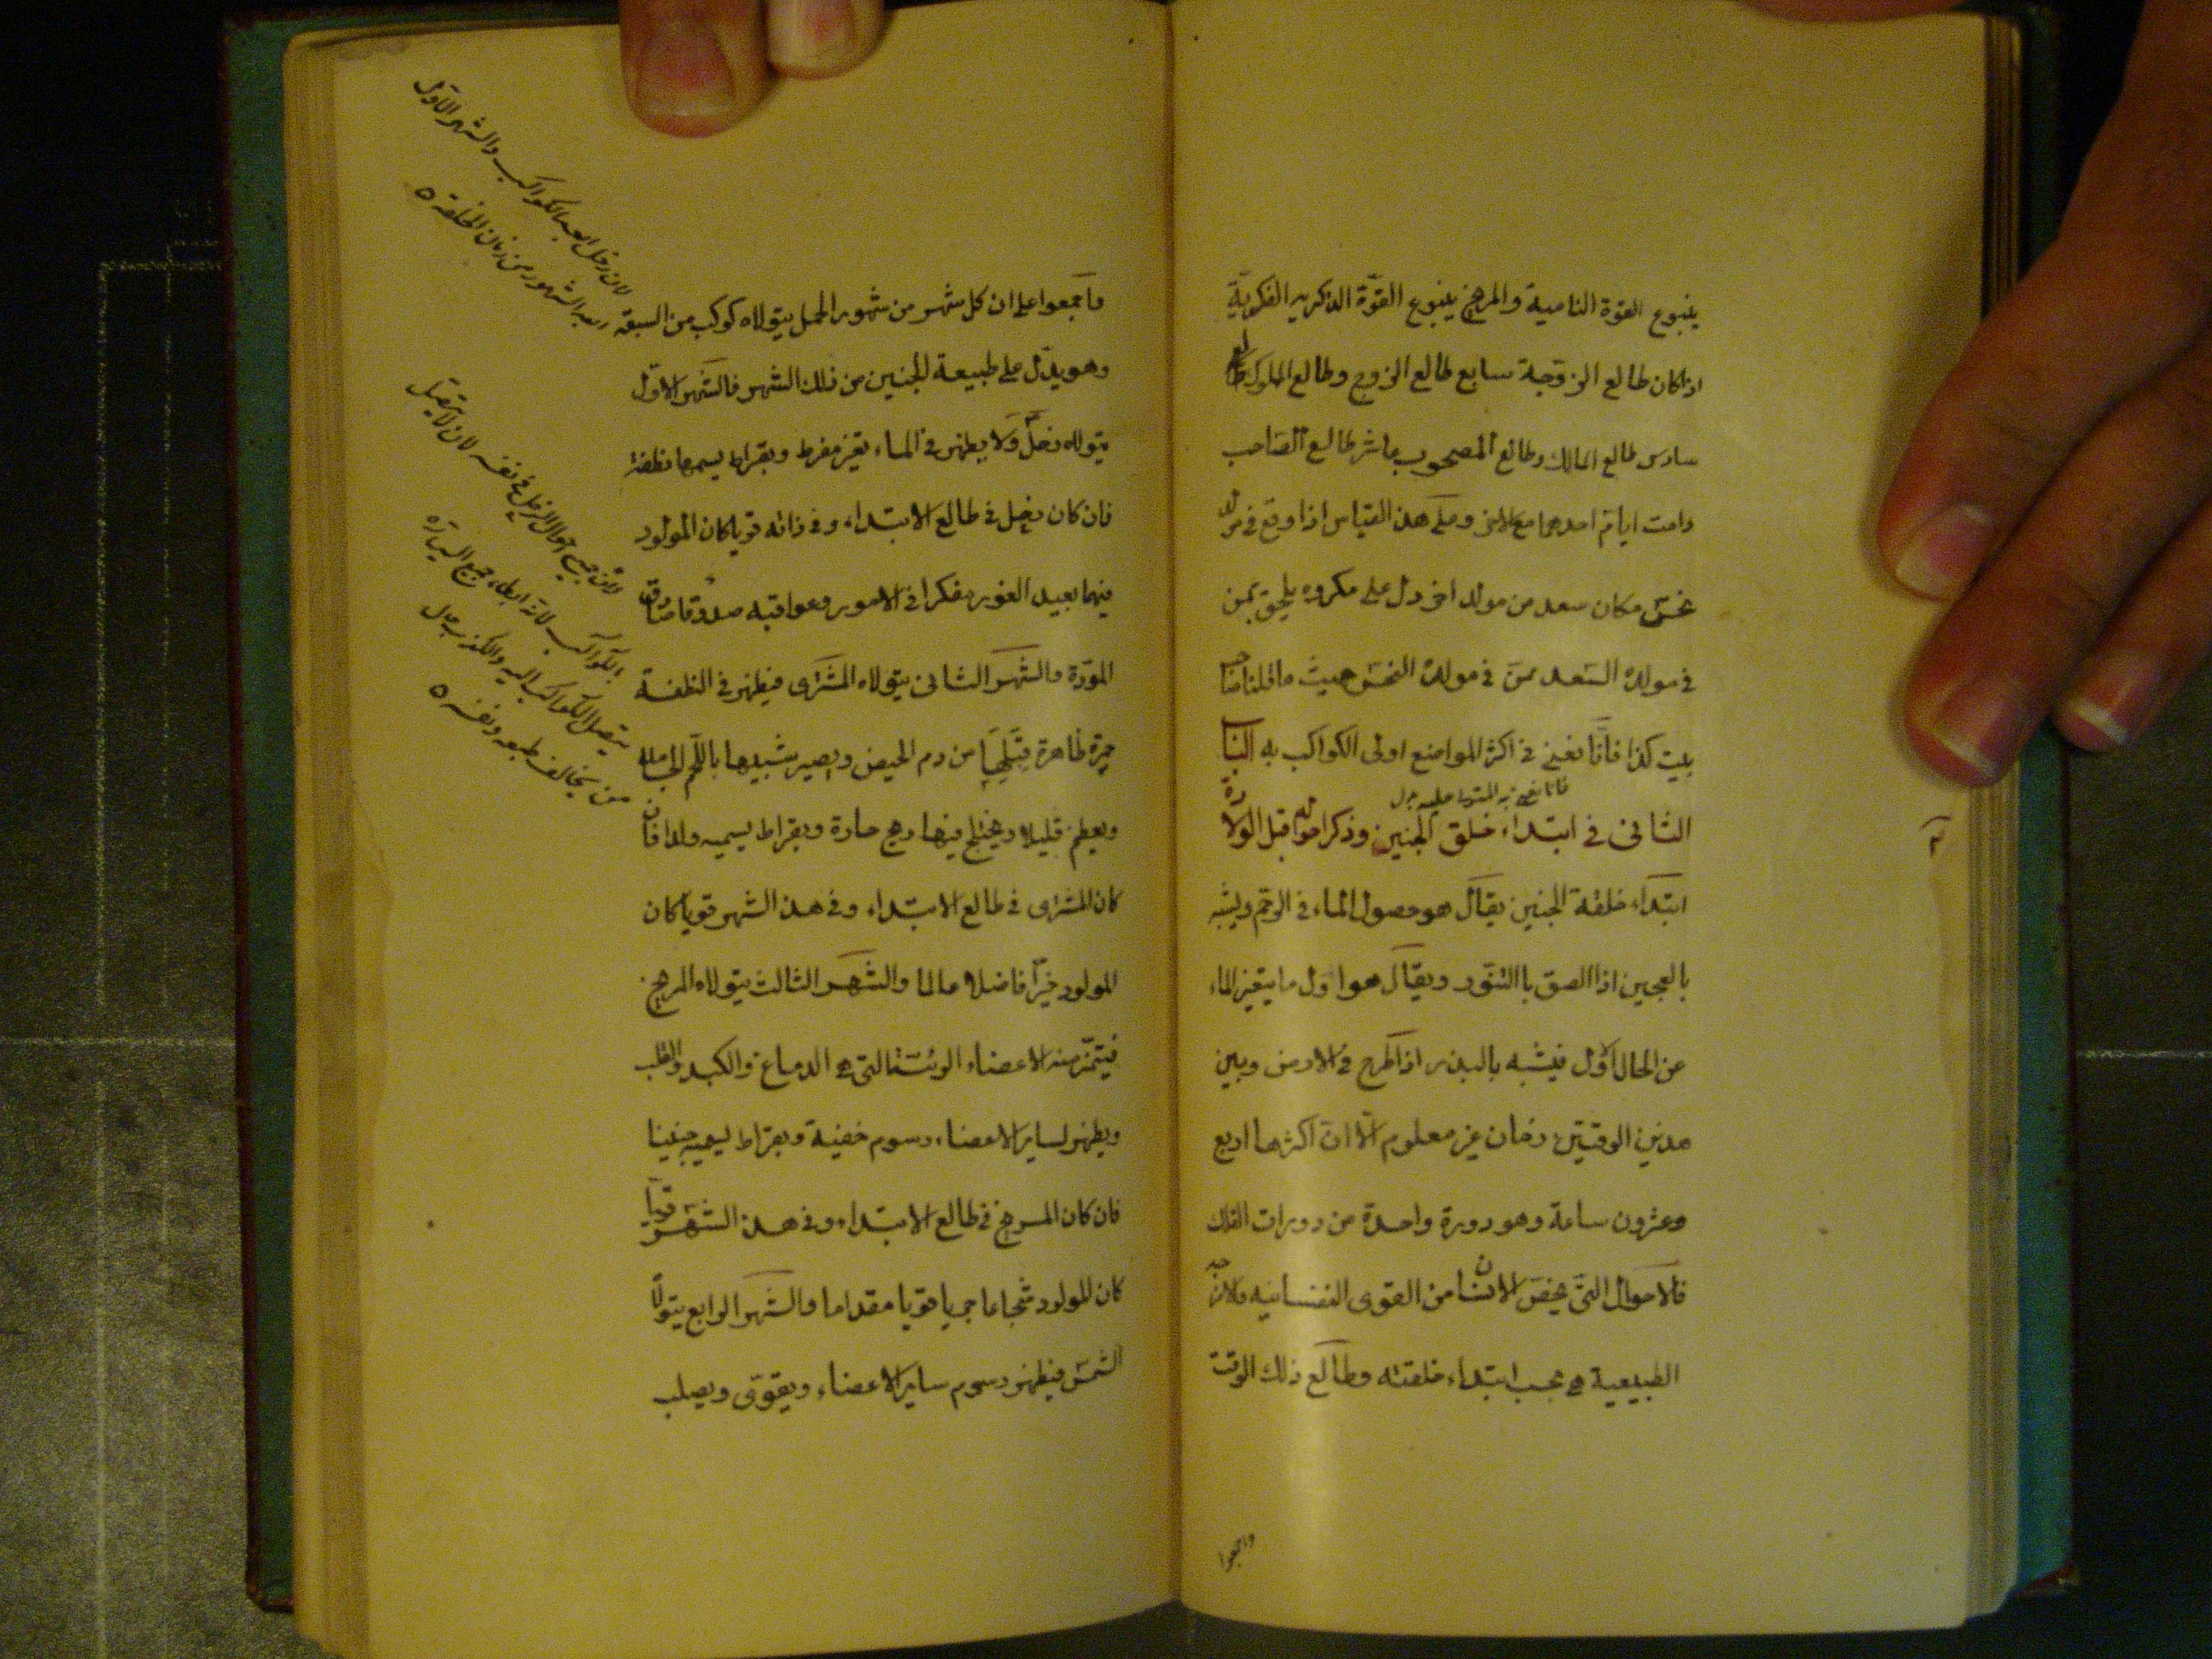 ينبوع القوة النامية والمريخ ينبوع القوة الذكرية الفكرية
اذا كان طالع الزوجة سابع طالع الزوج وطالع المملوك طالع
سادس طالع المالك وطالع المصحوب عاشر طالع الصاحب
دامت ايام احدهما مع الاخر وعلى هذا القياس اذا وقع في مولد
نحس مكان سعد من مولد اخر دل على مكروه يلحق بمن
في مولده السعد ممن في مولده النحس حيث ما قلنا صاحب
بيت كذا فانا نعني في اكثر المواضع اولى الكواكب به الباب
فانا نعني به المستولي عليه
الثاني في ابتداء خلق الجنين وذكر احواله قبل الولادة
ابتداء خلقة الجنين يقال هو حصول الماء في الرحم ويشبه
بالعجين اذا الصق باالتنور ويقال هو اول ما يتغير الماء
عن الحال الاول فيشبه بالبذر اذا طرح في الارض وبين
هذين الوقتين زمان غير معلوم الا ان اكثرها اربع
وعشرون ساعة وهو دورة واحدة من دورات الفلك
فالاحوال التي تخص الانسان من القوى النفسانية
الطبيعية هي بحسب ابتداء خلقته وطالع ذلك الوقت
واجمعوا
واجمعوا على ان كل شهر من شهور الحمل يتولاه كوكب من السبعة
وهو يدل على طبيعة الجنين من ذلك الشهر فالشهر الاول
يتولاه زحل ولا يظهر في الماء تغير مفرط وبقراط يسميها نطفة
فان كان زحل في طالع الابتداء وفي ذاته قويا كان المولود
فهما بعيد الغور مفكرا في الامور وعواقبه صدوقا صادق
المودة والشهر الثاني يتولاه المشترى فيظهر في النطفة
حمرة ظاهرة من دم الحيض ويصير شبيها باللحم الجامد
ويعظم قليلا ويختلج فيها رهج حارة وبقراط يسميه ولدا فان
كان المشترى في طالع الابتداء وفي هذا الشهر قويا كان
المولود خيرا فاضلا عالما والشهر الثالث يتولاه المريخ
فيتميز منه الاعضاء الرئيسة التي هي الدماغ والكبد والقلب
ويظهر لساير الاعضاء رسوم خفية وبقراط يسميه جنينا
فان كان المريخ في طالع الابتداء وفي هذا الشهر قويا
كان المولود شجاعا جريا قويا مقداما والشهر الرابع يتولاه
الشمس فيظهر رسوم ساير الاعضاء ويقوى ويصلب
لان زحل ابعد الكواكب والشهر الاول
ابعد الشهور من زمان الخلقة
لان لا يتصل
بالكواكب لانه ابطاء جميع السيارة
يتصل الكواكب اليه والكذب حال
من يخالف طبعه ونفسه